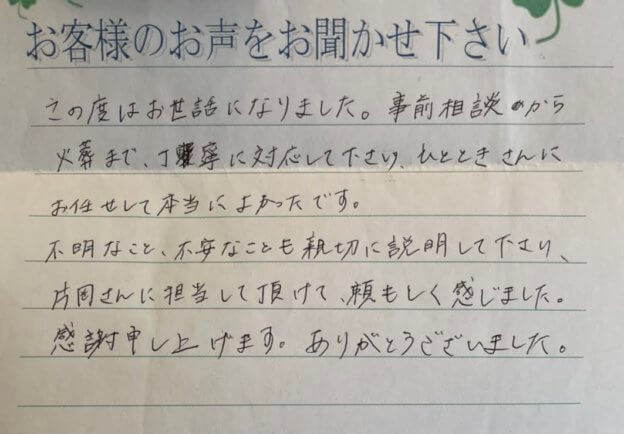 お客様のお声をお聞かせ下さい
この度はお世話になりました。事前相談から
火葬まで、丁寧に対応して下さり、ひとときさんに
お任せして本当によかったです。
不明なこと、不安なことも親切に説明して下さり、
片岡さんに担当して頂けて、頼もしく感じました。
感謝申し上げます。ありがとうございました。